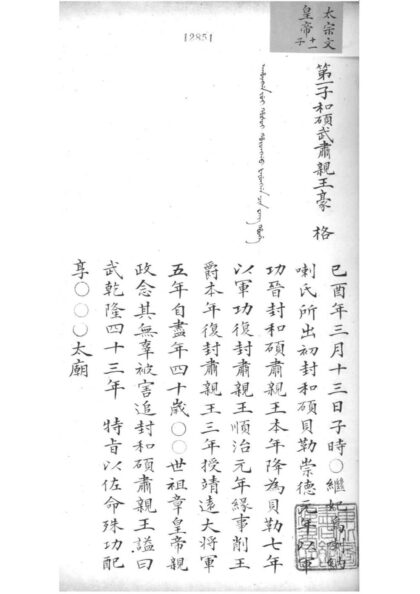 太宗文
皇帝十一子
12851
第一子和碩武肅親王豪 格
己酉年三月十三日子時〇繼妃烏喇納
喇氏所出初封和碩貝勒崇德元年以軍
功晉封和碩肅親王本年降為貝勒七年
以軍功復封肅親王順治元年緣事削王
爵本年復封肅親王三年授靖遠大將軍
五年自盡年四十歲〇〇世祖章皇帝親
政念其無辜被害追封和碩肅親王諡曰
武乾隆四十三年 特旨以佐命殊功配
享〇〇〇太廟